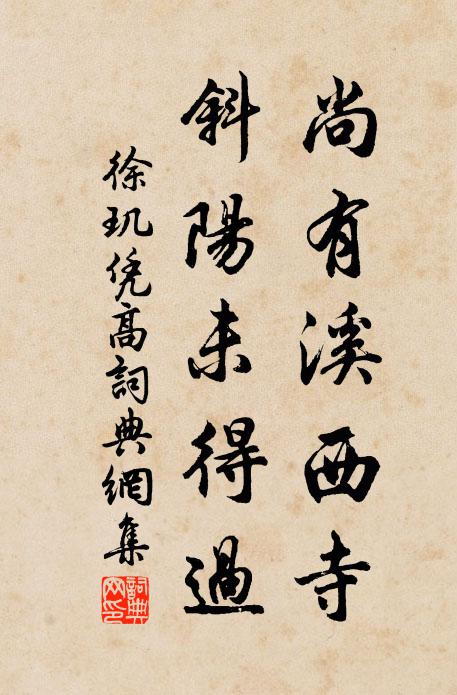 尚有溪西寺
斜陽未得過
徐玑凭高詞典網集
詞典网印